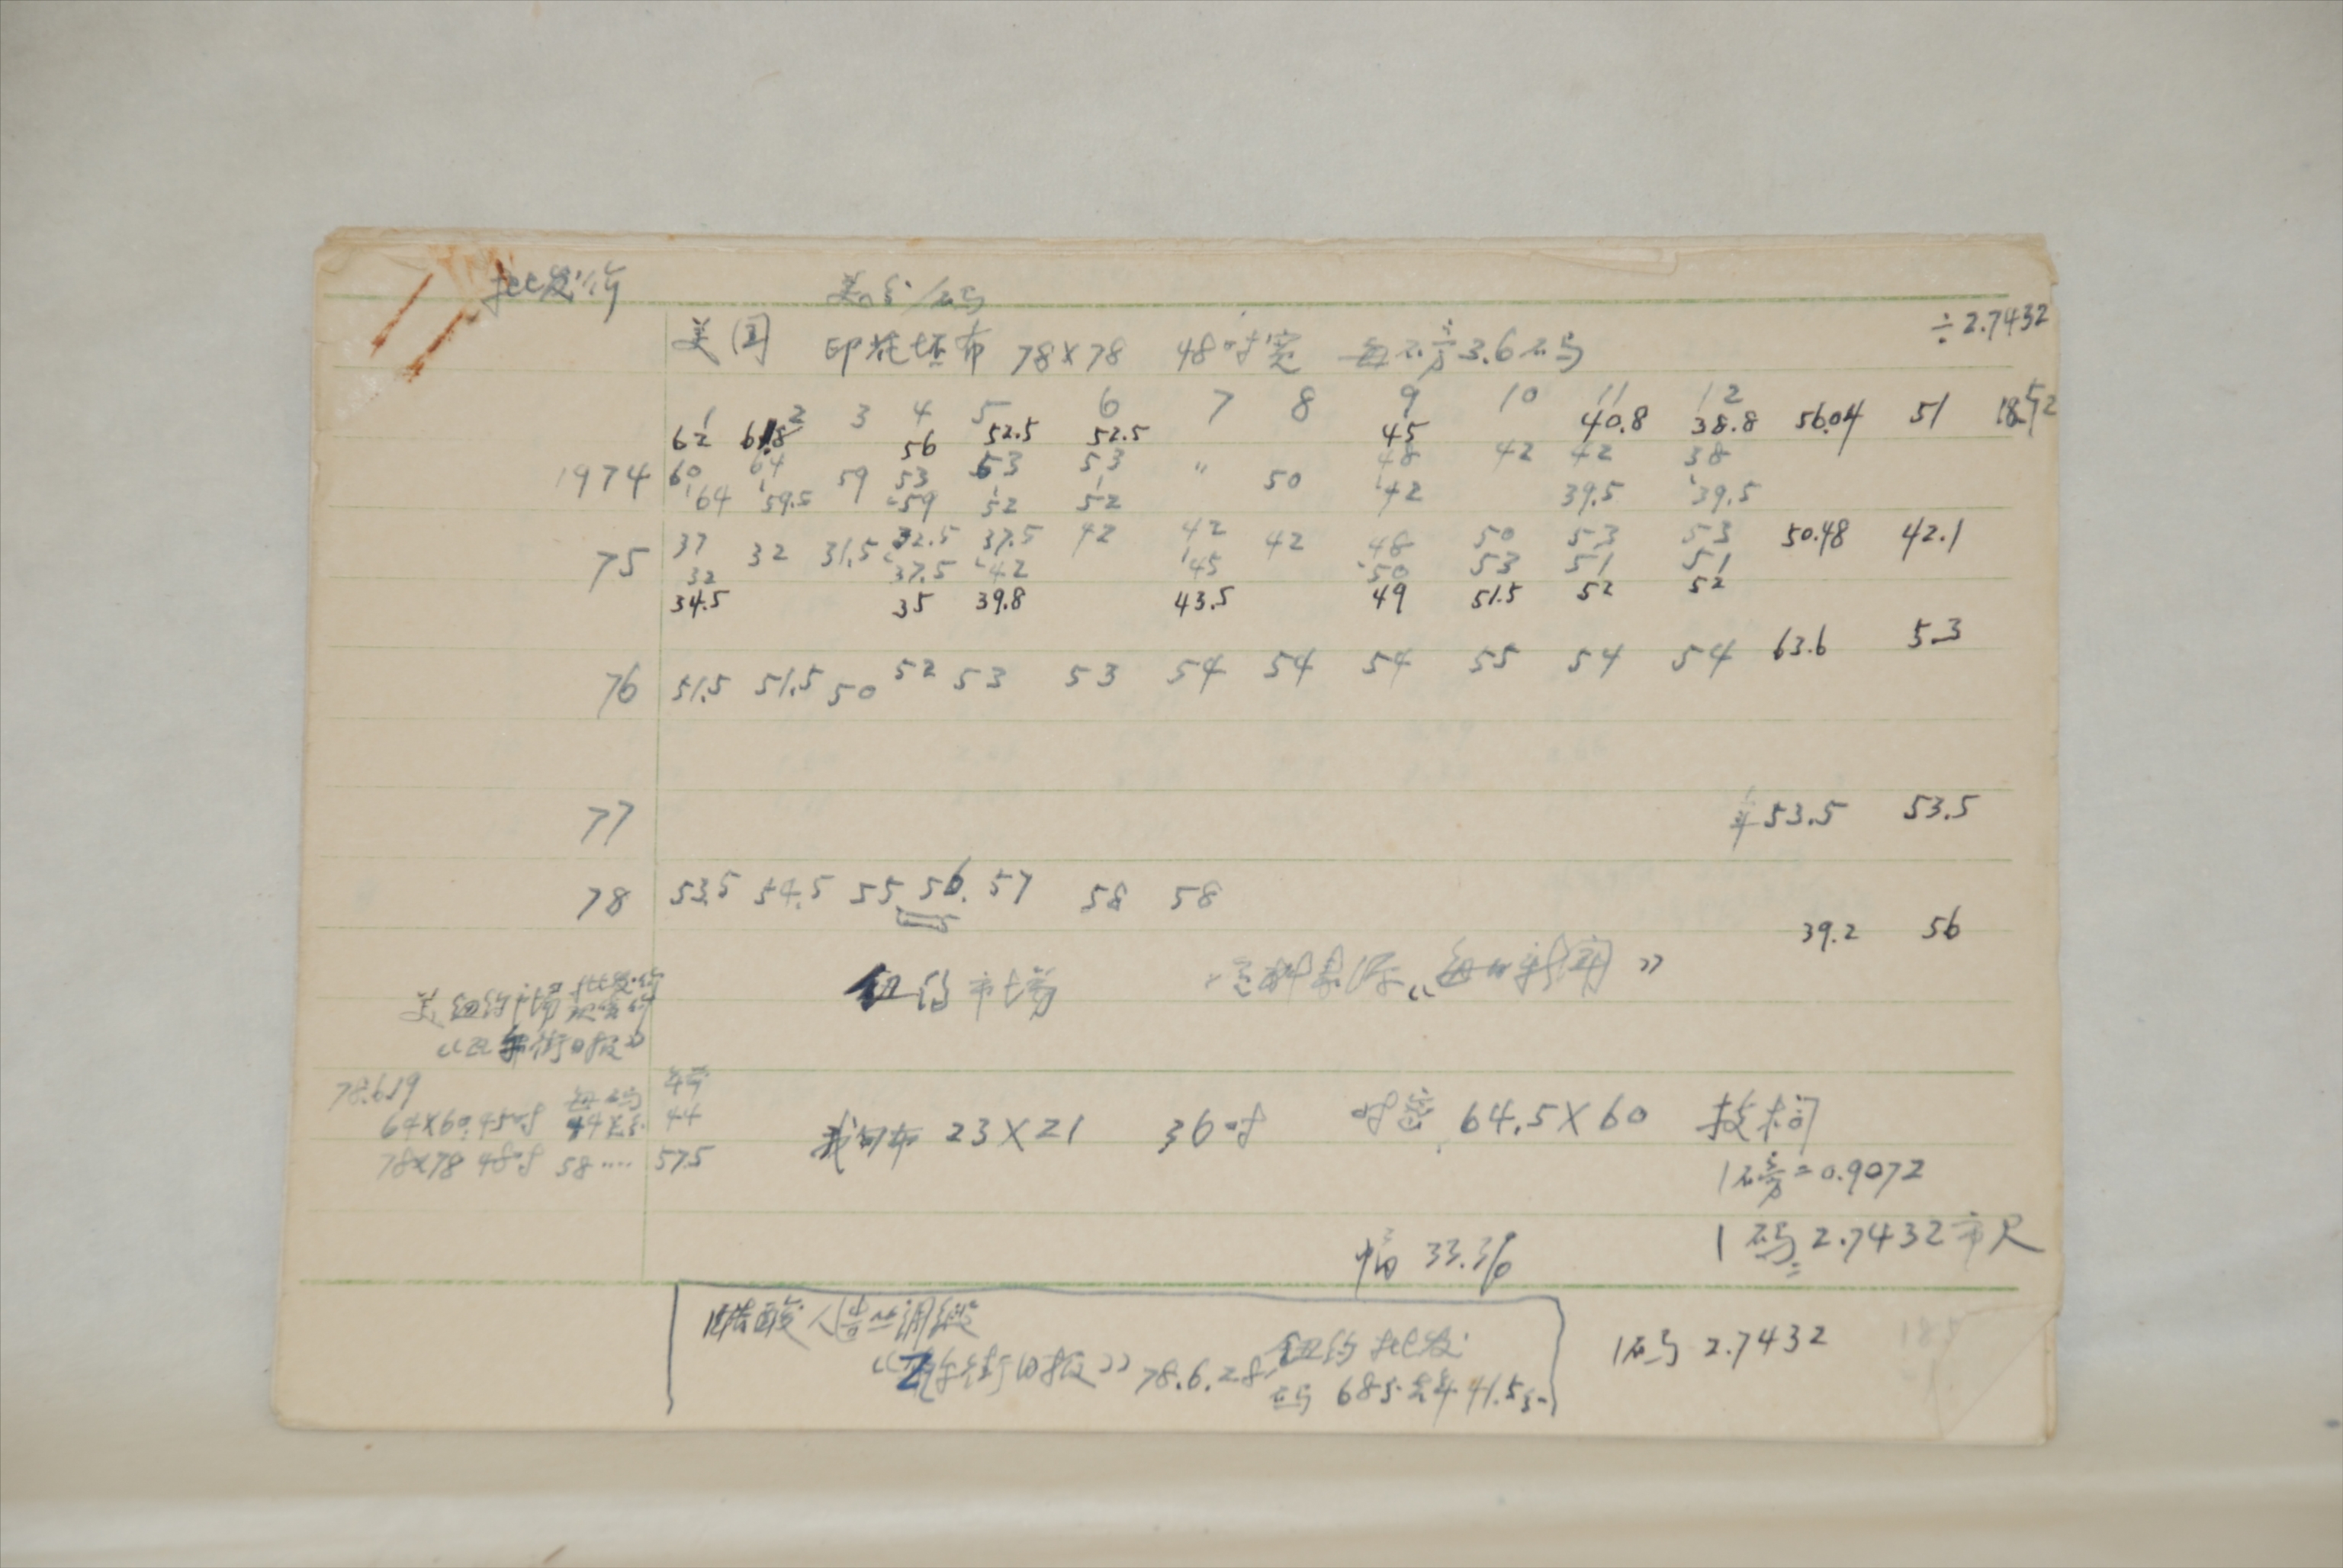 批发价 美分/码
美国 印花坯布 78×78 48吋宽 每磅3.6码 ÷2.7432
1 2 3 4 5 6 7 8 9 10 11 12
62 61.8 56 52.5 52.5 45 40.8 38.8 56.04 51
1974 60 64 59 53 53 53 " 50 48 42 42 38
64 59.5 59 52 52 42 39.5 39.5
75 37 32 31.5 32.5 37.5 42 42 42 48 50 53 53 50.48 42.1
32 37.5 42 45 50 53 51 51
34.5 35 39.8 43.5 49 51.5 52 52
76 51.5 51.5 50 52 53 53 54 54 54 55 54 54 63.6 5.3
77 53.5 53.5
78 53.5 54.5 55 56. 57 58 58 39.2 56
纽约市场 资料来源《每日新闻》
美纽约市场批发价
《华尔街日报》
78.6.19 每码
64×60 45吋 44美分 44
78×78 48吋 58 ···· 57.5
我旬布 23×21 36吋 吋密 64.5×60 技术问
1磅=0.9072
1码=2.7432市尺
幅 33.36
醋酸人造丝调缎
《华尔街日报》78.6.28 纽约批发
码 68分 去年 41.5分
1码 2.7432